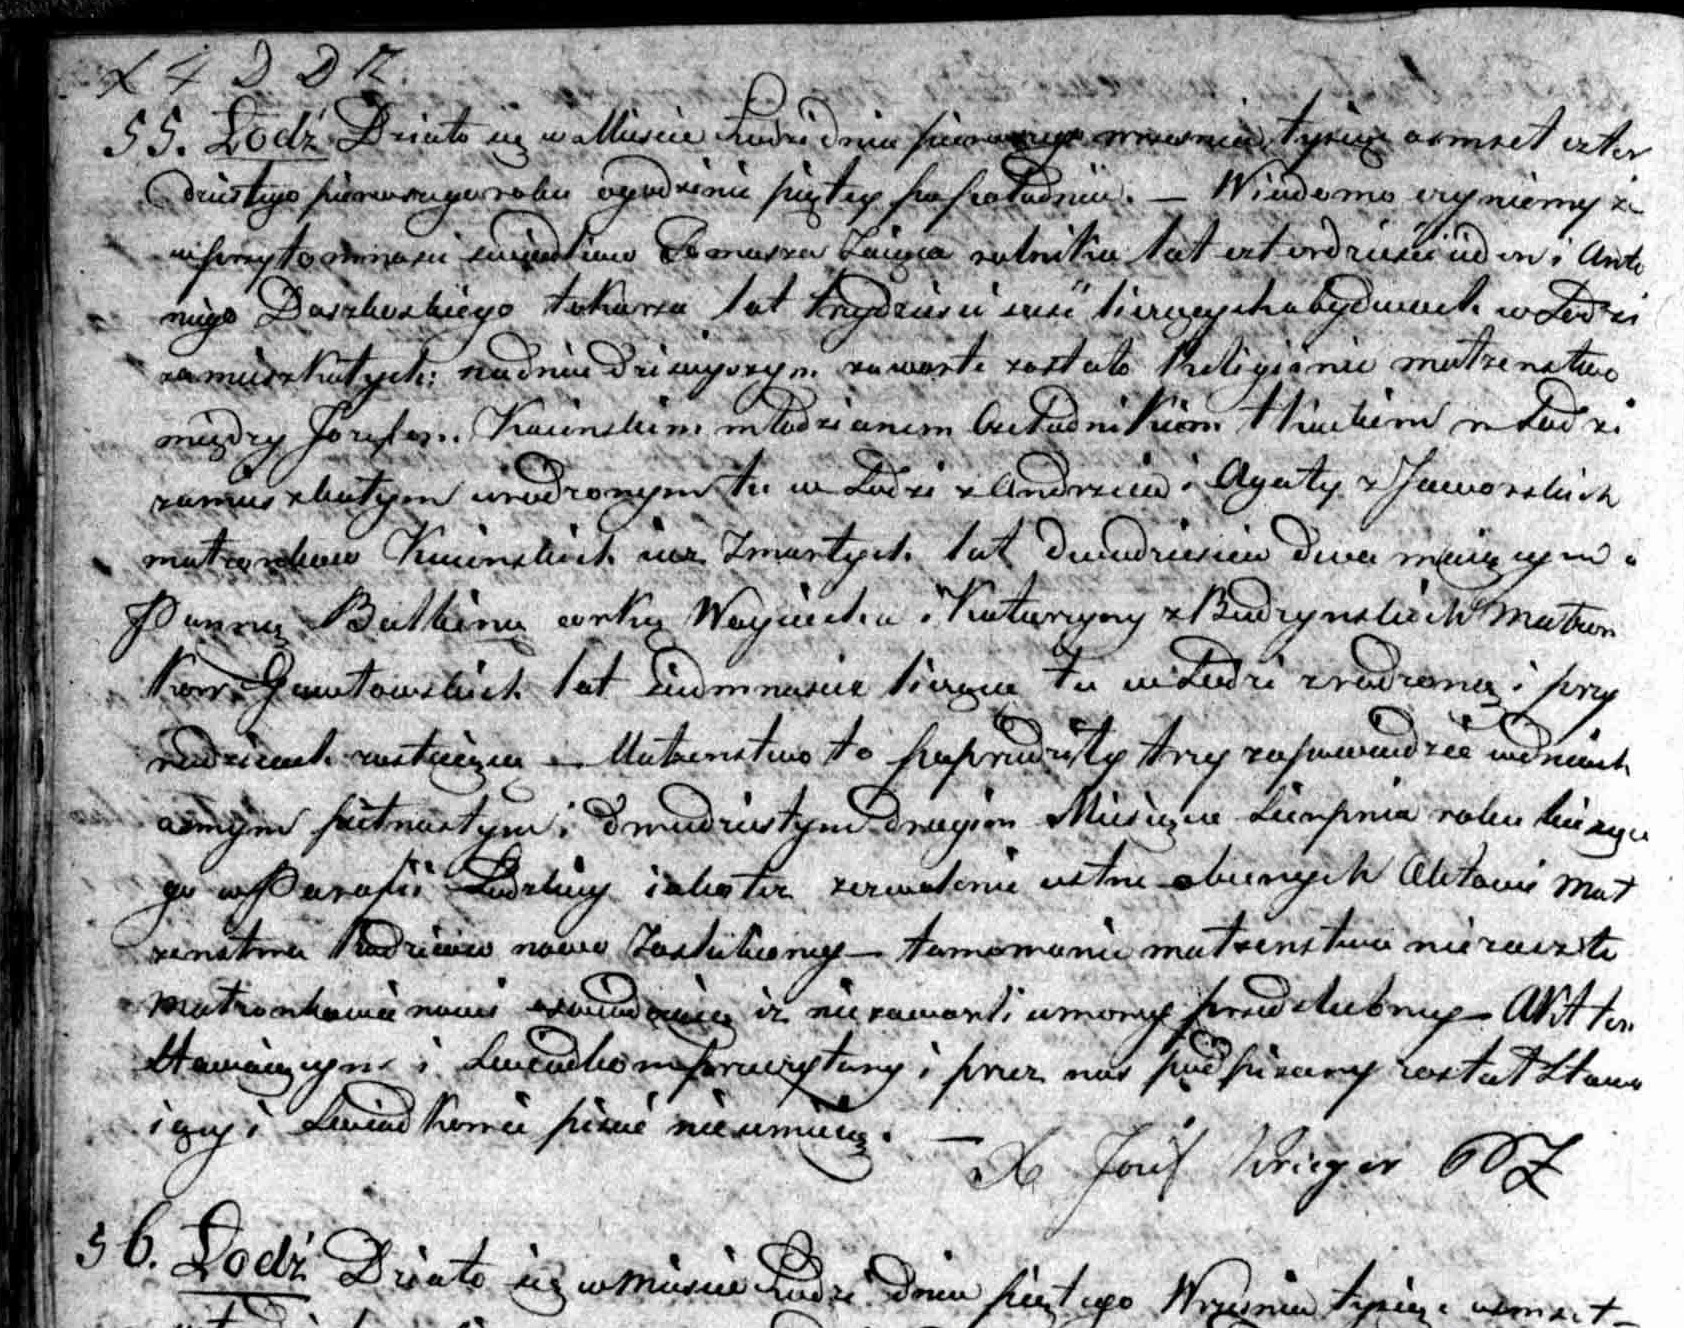 55. Łodź Działo się w Mieście Łodzi dnia pierwszego września tysiąc osmset czter
dziestego pierwszego roku o godzinie piątey popołudniu. — Wiadomo czyniemy że
w przytomności swiadkow Tomasza Zaiąca rolnika lat czterdzieści ieden i Anto
niego Daszkoskiego tokarza lat trzydzieści sześć liczących obydwuch w Łodzi
zamieszkałych: na dniu dzisieyszym zawarte zostało Religijnie małżenstwo
między Jozefem Kaminskim młodzianem Czeladnikiem tkackim w Łodzi
zamieszkałym urodzonym tu w Łodzi z Andrzeia i Agaty z Jaworskich
małżonkow Kaminskich iuż Zmarłych lat dwadzieścia dwa maiącym a
Panną Balbiną corką Woyciecha i Katarzyny z Budzynskich Małżon
kow Gawłowskich lat siedmnaście liczącą tu w Łodzi zrodzoną i przy
rodzicach zostaiącą — Małżenstwo to poprzedziły trzy zapowiedzie w dniach
osmym pietnastym i dwudziestym drugim Miesiąca Sierpnia roku bieżące
go w Parafii Łodzkiey iakoteż zezwolenie ustne obecnych Aktowi Mał
żenstwa Rodzicow nowo Zaślubioney — tamowanie małżenstwa nie zaszło
Małżonkowie nowi oswiadczaią iż nie zawarli umowy przedślubney — Akt ten
Stawaiącym i Swiadkom przeczytany i przez nas podpisany został Stawa
iący i Swiadkowie pisać nieumieią. —
X Jozef Krieger
56. Łodź Działo się w Mieście Łodzi dnia piątego Wrzesnia tysiąc osmset —